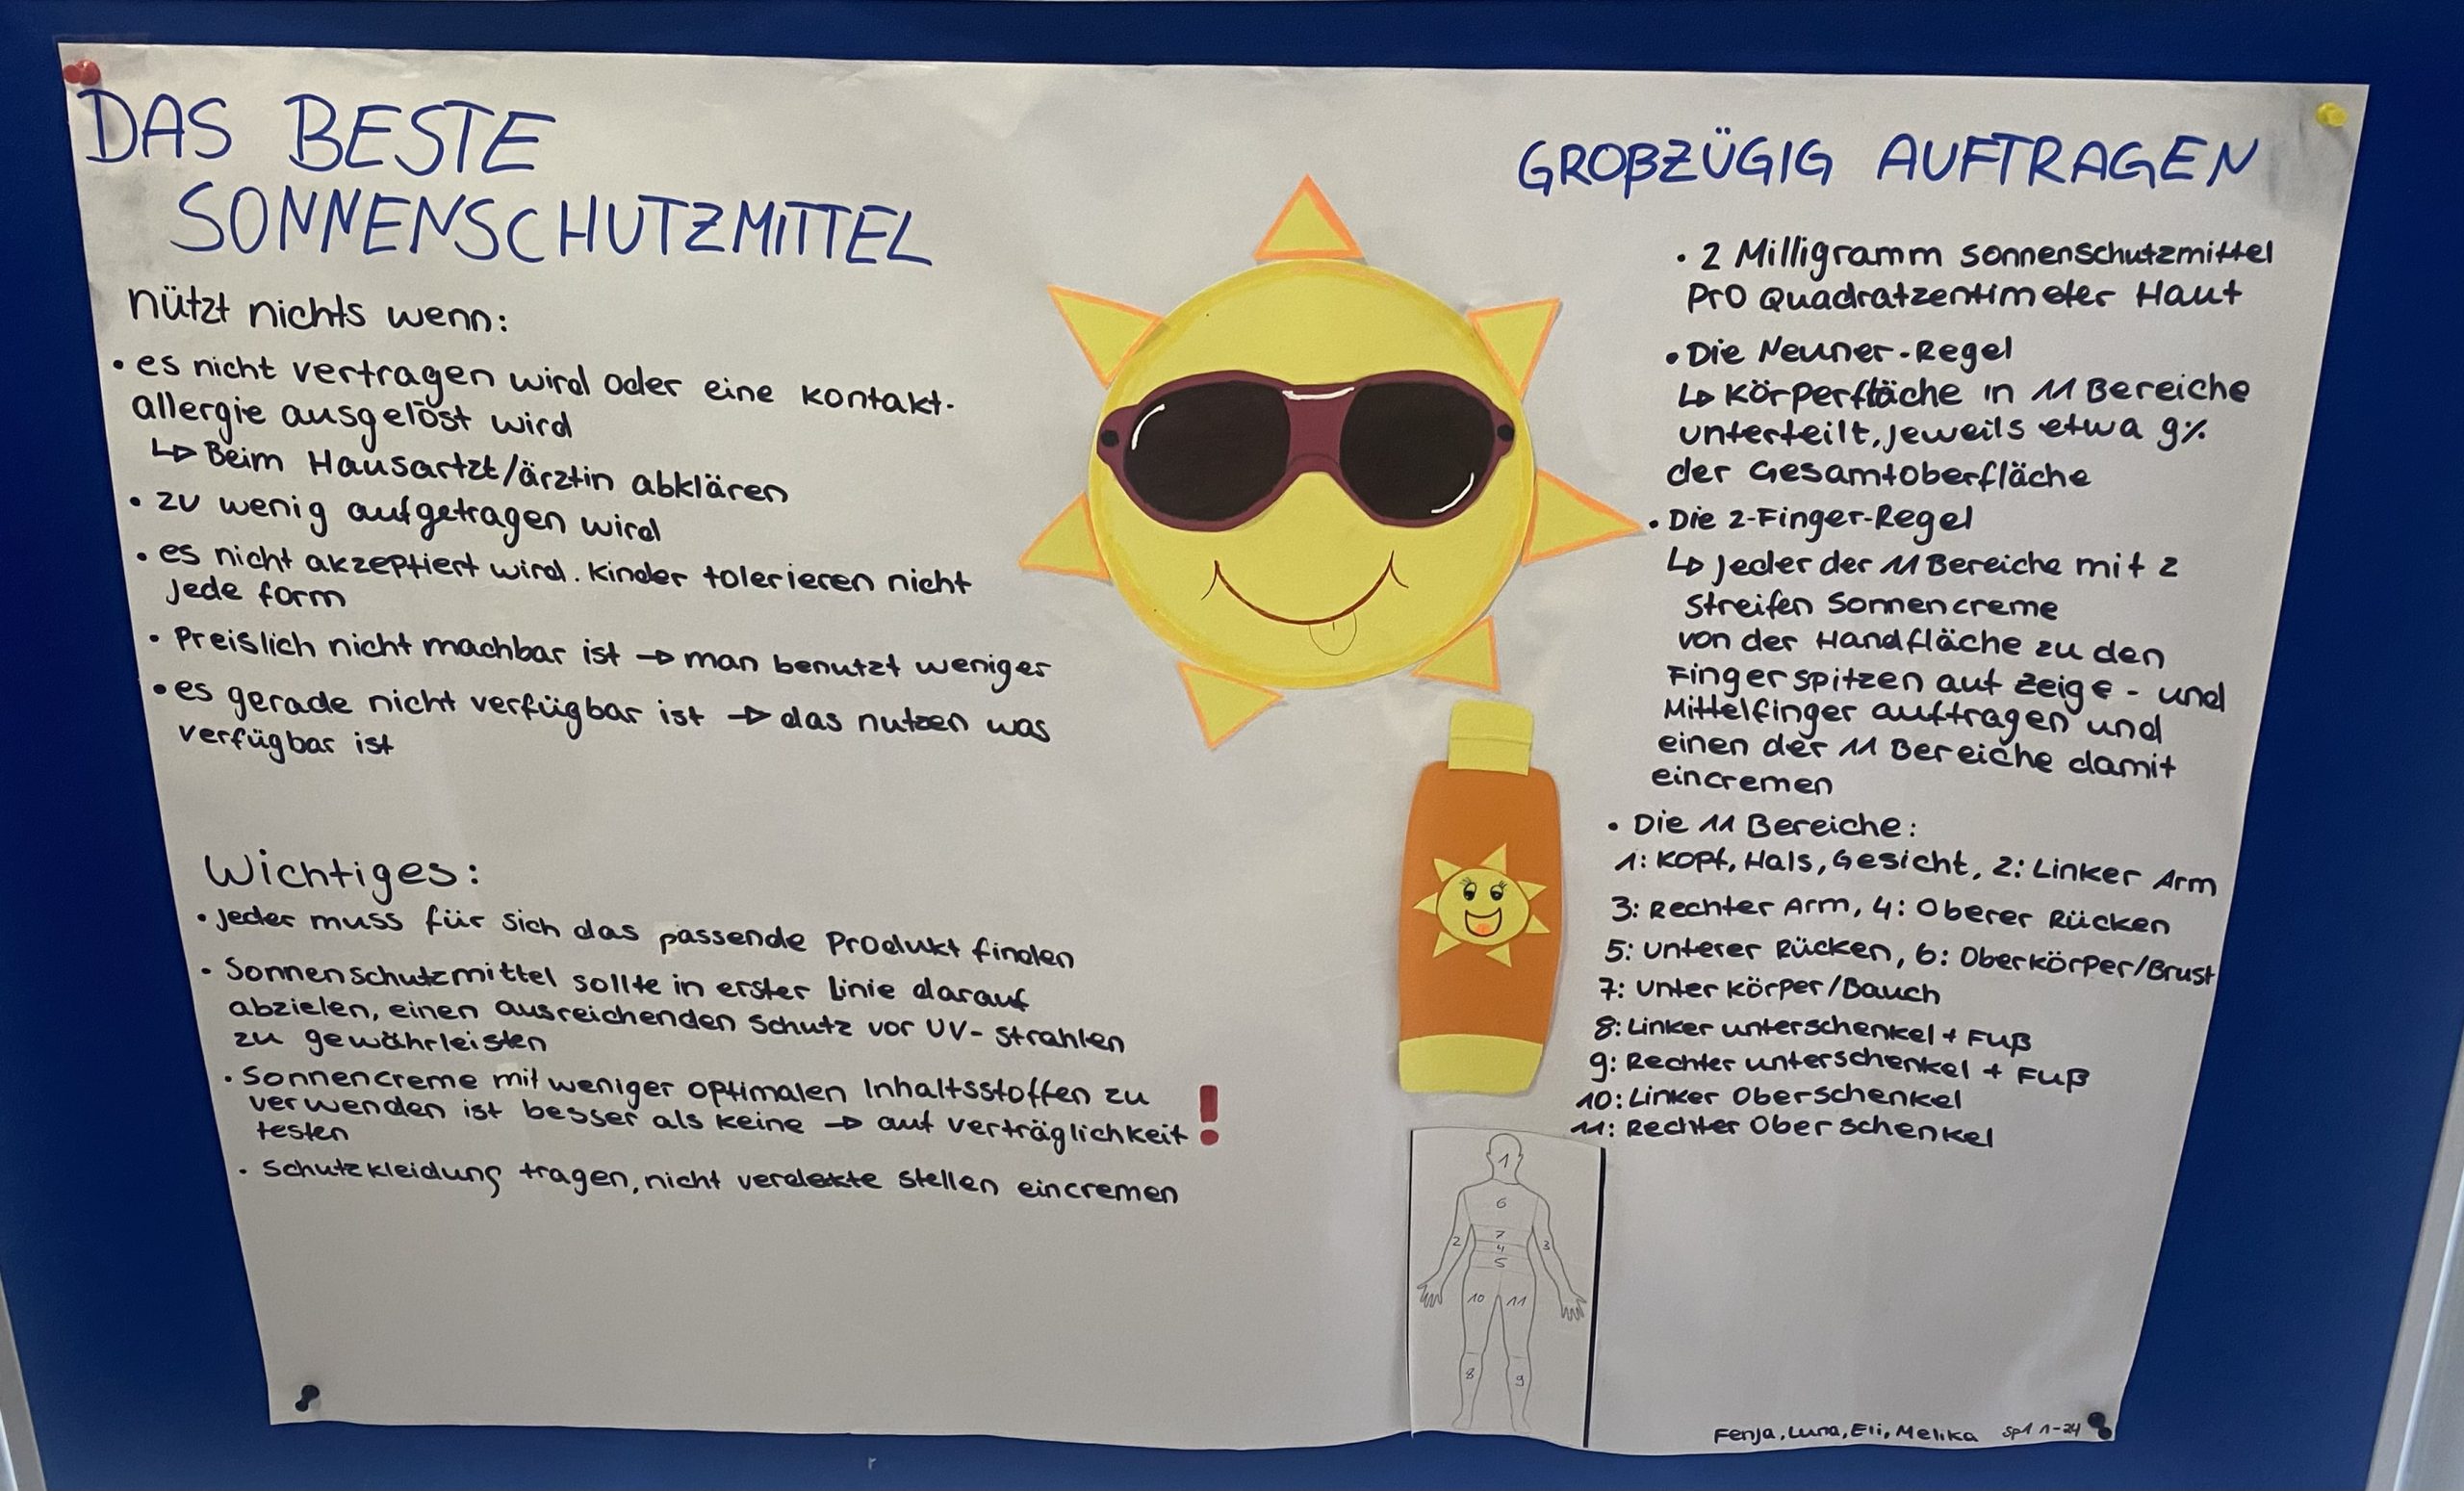 DAS BESTE
SONNENSCHUTZMITTEL
nützt nichts wenn:
• es nicht vertragen wird oder eine kontakt-
allergie ausgelöst wird
↳ Beim Hausartzt/ärztin abklären
• zu wenig aufgetragen wird
• es nicht akzeptiert wird. Kinder tolerieren nicht
jede form
• Preislich nicht machbar ist → man benutzt weniger
• es gerade nicht verfügbar ist → das nutzen was
verfügbar ist
Wichtiges:
• jeder muss für sich das passende Produkt finden
• Sonnenschutzmittel sollte in erster Linie darauf
abzielen, einen ausreichenden Schutz vor UV-Strahlen
zu gewährleisten
• Sonnencreme mit weniger optimalen Inhaltsstoffen zu
verwenden ist besser als keine → auf verträglichkeit !
testen
• Schutzkleidung tragen, nicht verdekte stellen eincremen
GROßZÜGIG AUFTRAGEN
• 2 Milligramm sonnenschutzmittel
pro Quadratzentimeter Haut
• Die Neuner-Regel
↳ Körperfläche in 11 Bereiche
unterteilt, jeweils etwa 9%
der Gesamtoberfläche
• Die 2-Finger-Regel
↳ Jeder der 11 Bereiche mit 2
Streifen Sonnencreme
von der Handfläche zu den
Fingerspitzen auf Zeige- und
Mittelfinger auftragen und
einen der 11 Bereiche damit
eincremen
• Die 11 Bereiche:
1: Kopf, Hals, Gesicht, 2: Linker Arm
3: Rechter Arm, 4: Oberer Rücken
5: unterer Rücken, 6: Oberkörper/Brust
7: Unterkörper/Bauch
8: Linker unterschenkel + Fuß
9: Rechter unterschenkel + Fuß
10: Linker Oberschenkel
11: Rechter Oberschenkel
1
6
2 7 3
4
5
10 11
8 9
Fenja, Luna, Eli, Melika Sp1 1-24